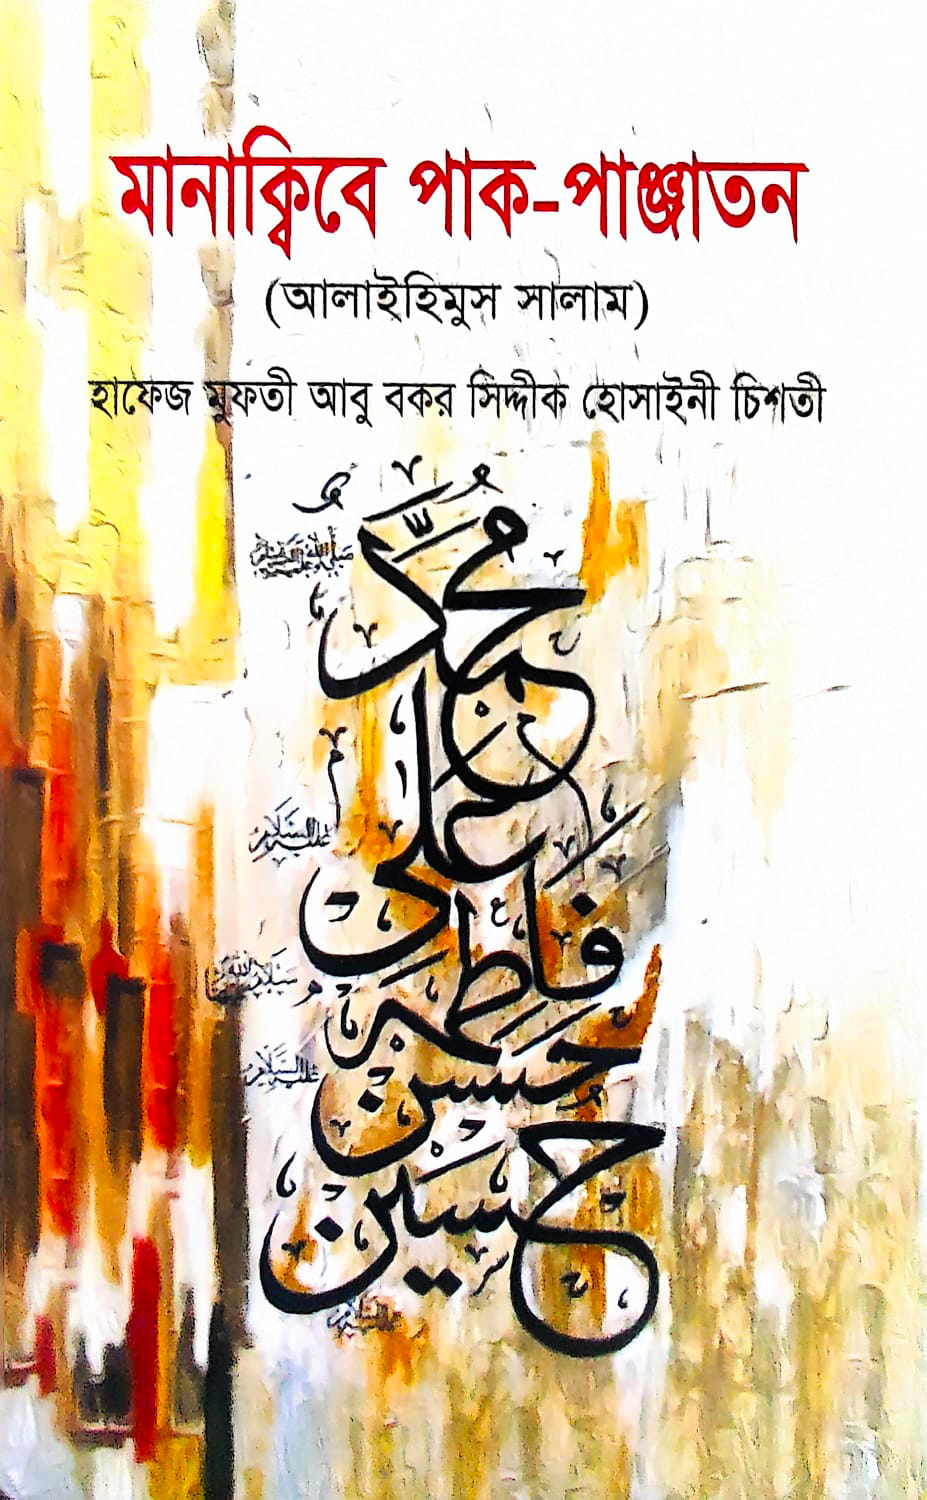 মানাক্বিবে পাক-পাঞ্জাতন
(আলাইহিমুস সালাম)
হাফেজ মুফতী আবু বকর সিদ্দীক হোসাইনী চিশতী
محمد
صلى الله عليه وسلم
علي
عليه السلام
فاطمة
سلام الله عليها
حسن
عليه السلام
حسين
عليه السلام